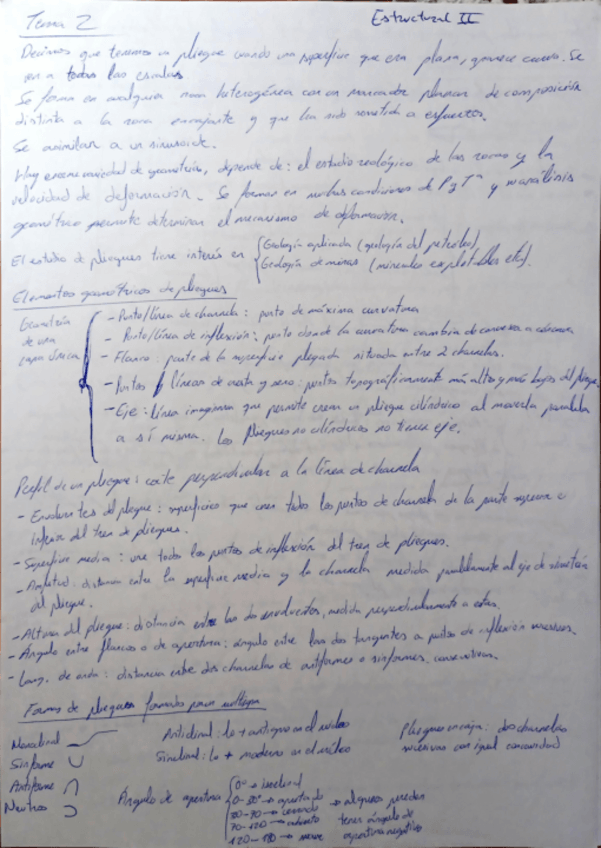 Tema 2
Estructural II
Decimos que tenemos un pliegue cuando una superficie que era plana, aparece curva. Se
ven a todas las escalas
Se forman en cualquier roca heterogénea con un marcador planar de composición
distinta a la roca encajante y que ha sido sometida a esfuerzos.
Se asimilan a un sinusoide.
Hay enorme variedad de geometrías, depende de: el estudio reológico de las rocas y la
velocidad de deformación. Se forman en muchas condiciones de P y Tª y su análisis
geométrico permite determinar el mecanismo de deformación.
El estudio de pliegues tiene interés en
Geología aplicada (geología del petróleo)
Geología de minas (minerales explotables etc).
Elementos geométricos de pliegues
Geometría
de una
capa única
- Punto/línea de charnela: punto de máxima curvatura
- Punto/línea de inflexión: punto donde la curvatura cambia de convexa a cóncava
- Flanco: parte de la superficie plegada situada entre 2 charnelas.
- Puntos / líneas de cresta y seno: puntos topográficamente más altos y más bajos del pliegue.
- Eje: línea imaginaria que permite crear un pliegue cilíndrico al moverla paralela
a sí misma. Los pliegues no cilíndricos no tienen eje.
Perfil de un pliegue: corte perpendicular a la línea de charnela
- Envolventes del pliegue: superficies que unen todos los puntos de charnela de la parte superior e
inferior del tren de pliegues.
- Superficie media: une todos los puntos de inflexión del tren de pliegues.
- Amplitud: distancia entre la superficie media y la charnela medida paralelamente al eje de simetría
del pliegue.
- Altura del pliegue: distancia entre las dos envolventes, medida perpendicularmente a estas.
- Ángulo entre flancos o de apertura: ángulo entre las dos tangentes a puntos de inflexión sucesivos.
- Long. de onda: distancia entre dos charnelas de antiformes o sinformes consecutivas.
Formas de pliegues formados para
Monoclinal
Sinforme
Antiforme
Neutros
Anticlinal: lo + antiguo en el núcleo
Sinclinal: lo + moderno en el núcleo
Pliegues en caja: dos charnelas
sucesivas con igual concavidad
Ángulo de apertura
0° → isoclinal
0-30° → apretado
30-70 → cerrado
70-120 → abierto
120-180 → suave
→ algunos pueden
tener ángulo de
apertura negativo